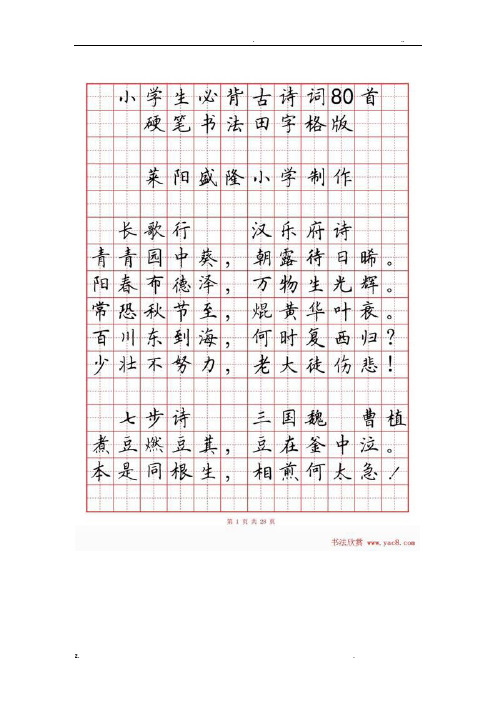 小学生必背古诗词80首
硬笔书法田字格版
莱阳盛隆小学制作
长歌行 汉乐府诗
青青园中葵，朝露待日晞。
阳春布德泽，万物生光辉。
常恐秋节至，焜黄华叶衰。
百川东到海，何时复西归？
少壮不努力，老大徒伤悲！
七步诗 三国魏 曹植
煮豆燃豆萁，豆在釜中泣。
本是同根生，相煎何太急！
第 1 页 共 29 页
书法欣赏 www.yac8.com
z.